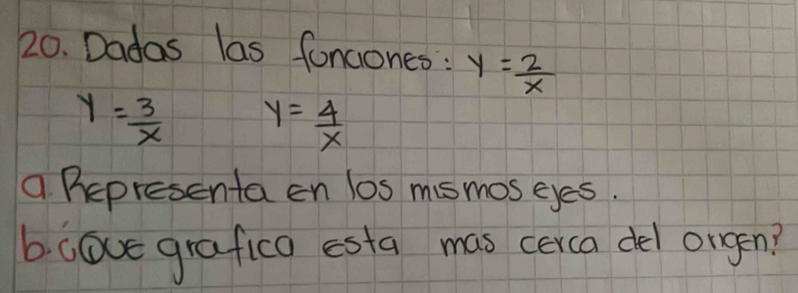 20. Dadas las funciones: y = 2/x
y = 3/x y = 4/x
a. Representa en los mismos ejes.
b. ¿Que grafica esta mas cerca del origen?